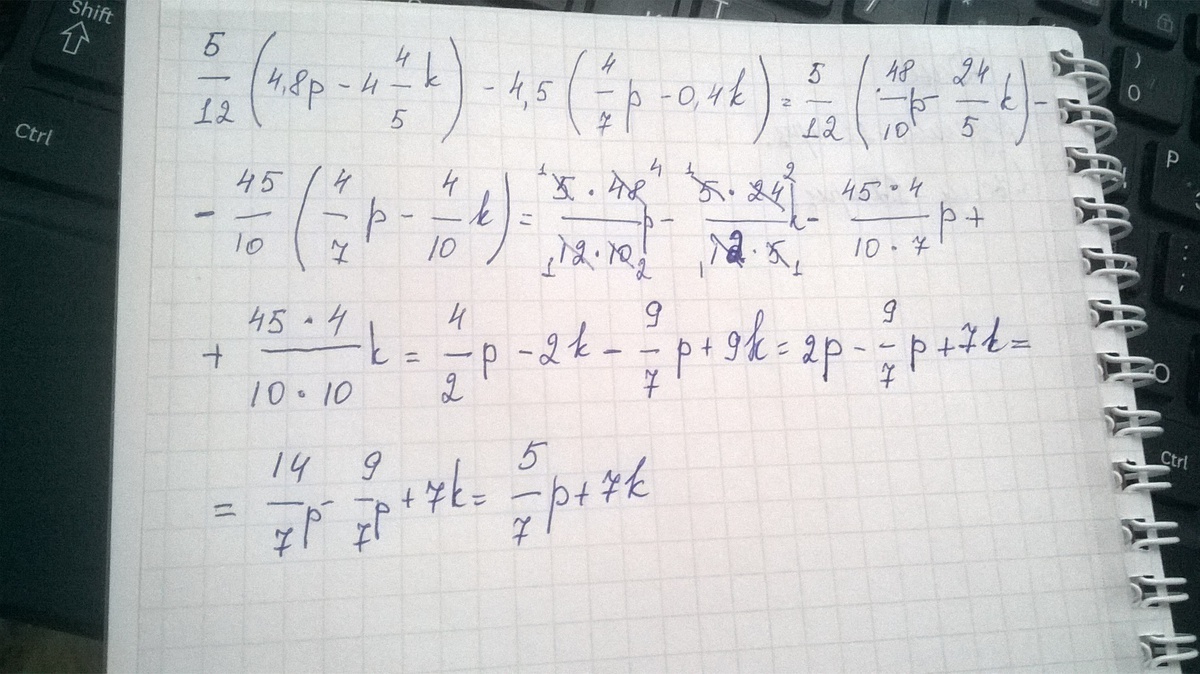 Shift
Ctrl
T
5/12 (4,8p - 4 4/5 k) - 4,5 (4/7 p - 0,4k) = 5/12 (48/10 p - 24/5 k) -
- 45/10 (4/7 p - 4/10 k) = 5 · 48/12 · 10 p - 5 · 24/12 · 5 k - 45 · 4/10 · 7 p +
+ 45 · 4/10 · 10 k = 4/2 p - 2k - 9/7 p + 9k = 2p - 9/7 p + 7k =
= 14/7 p - 9/7 p + 7k = 5/7 p + 7k
)
0
P
Ctrl